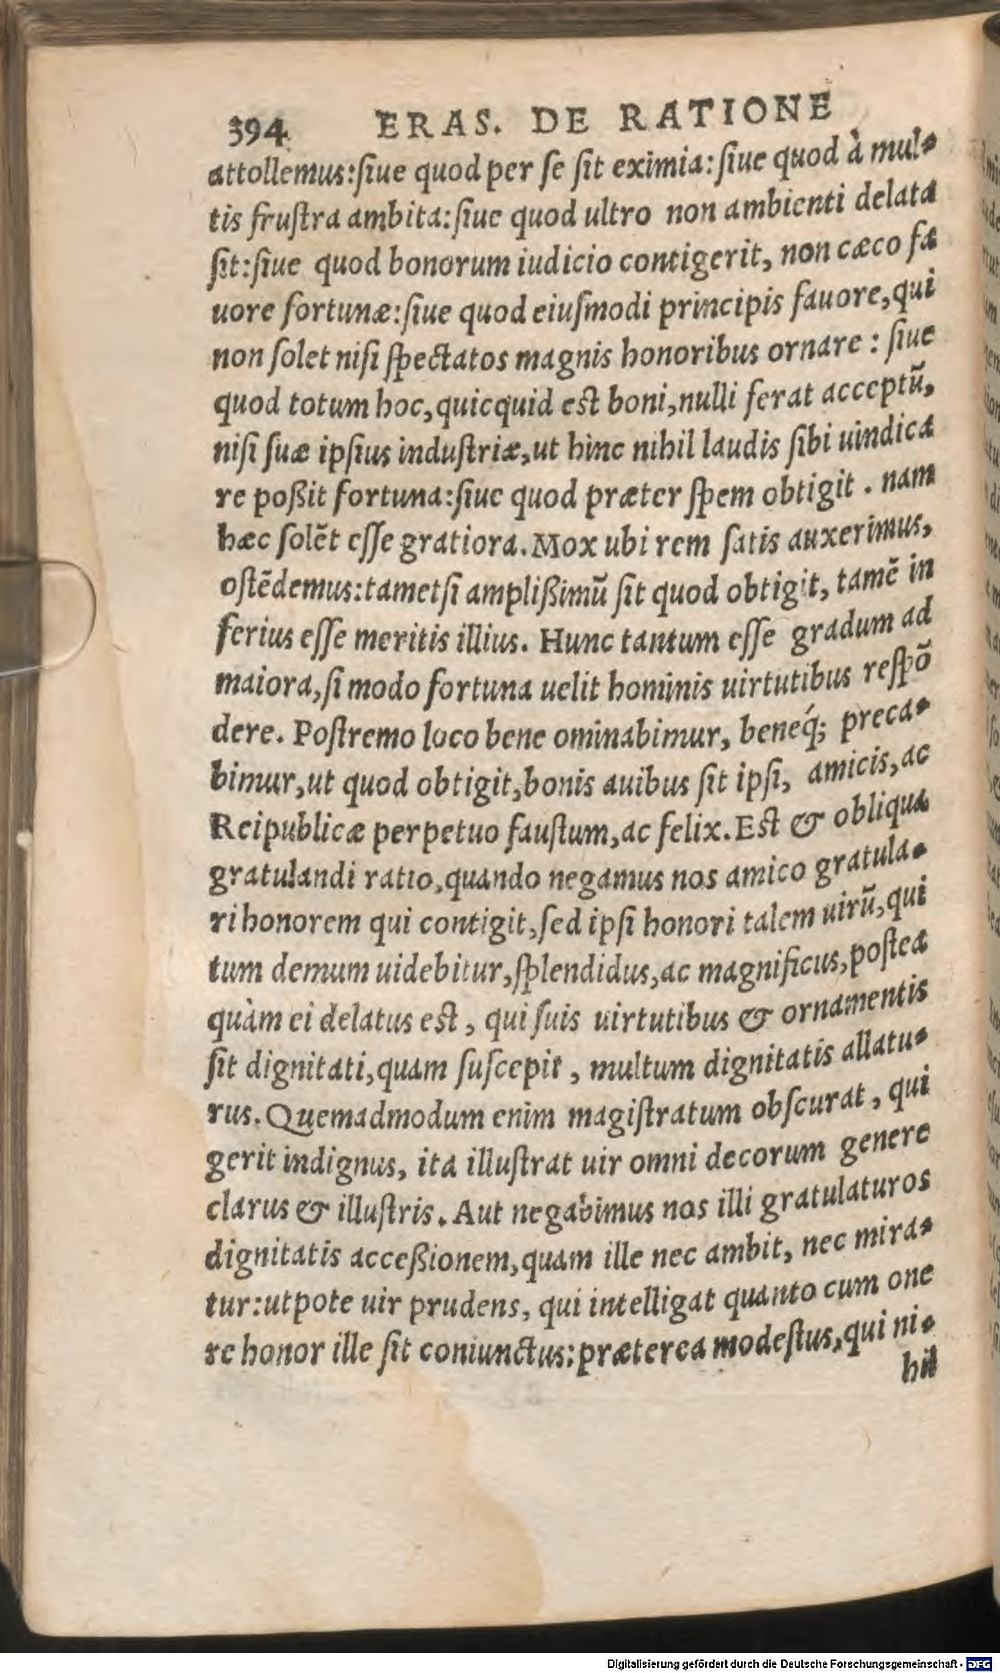 394 ERAS. DE RATIONE
attollemus:ſiue quod per ſe ſit eximia:ſiue quod à mul-
tis fruſtra ambita:ſiue quod ultro non ambienti delata
ſit:ſiue quod bonorum iudicio contigerit, non cæco fa
uore fortunæ:ſiue quod eiuſmodi principis fauore,qui
non ſolet niſi ſpectatos magnis honoribus ornare : ſiue
quod totum hoc,quicquid est boni,nulli ferat acceptū,
niſi ſuæ ipſius induſtriæ,ut hinc nihil laudis ſibi uindica
re poßit fortuna:ſiue quod præter ſpem obtigit . nam
hæc ſolēt eſſe gratiora.Mox ubi rem ſatis auxerimus,
oſtēdemus:tametſi amplißimū ſit quod obtigit, tamē in
ferius eſſe meritis illius. Hunc tantum eſſe gradum ad
maiora,ſi modo fortuna uelit hominis uirtutibus reſpō
dere. Poſtremo loco bene ominabimur, beneq́; preca-
bimur,ut quod obtigit,bonis auibus ſit ipſi, amicis,ac
Reipublicæ perpetuo fauſtum,ac felix.Est & obliqua
gratulandi ratio,quando negamus nos amico gratula-
ri honorem qui contigit,ſed ipſi honori talem uirū,qui
tum demum uidebitur,ſplendidus,ac magnificus,poſtea
quàm ei delatus est , qui ſuis uirtutibus & ornamentis
ſit dignitati,quam ſuſcepit , multum dignitatis allatu-
rus. Quemadmodum enim magiſtratum obſcurat , qui
gerit indignus, ita illuſtrat uir omni decorum genere
clarus & illuſtris. Aut negabimus nos illi gratulaturos
dignitatis acceßionem,quam ille nec ambit, nec mira-
tur:utpote uir prudens, qui intelligat quanto cum one
re honor ille ſit coniunctus:præterea modeſtus,qui ni-
hil
Digitalisierung gefördert durch die Deutsche Forschungsgemeinschaft - DFG